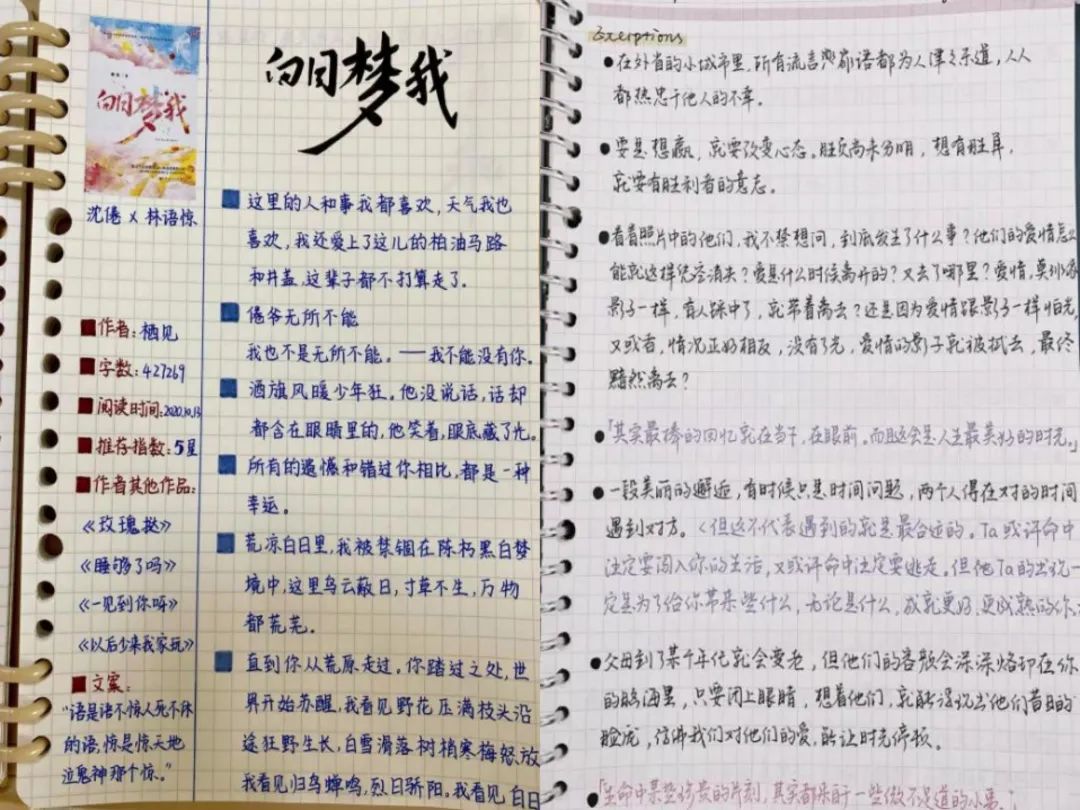 向日梦我
向日梦我
沈倦 x 林语惊
作者：栖见
字数：427269
阅读时间：2020.10.13
推荐指数：5星
作者其他作品：
《玫瑰挞》
《睡够了吗》
《一见到你呀》
《以后少来我家玩》
文案：
“语是语不惊人死不休
的语，惊是惊天地
泣鬼神那个惊。”
这里的人和事我都喜欢，天气我也
喜欢，我还爱上了这儿的柏油马路
和井盖，这辈子都不打算走了。
倦爷无所不能
我也不是无所不能。——我不能没有你。
酒旗风暖少年狂。他没说话，话却
都含在眼睛里的，他笑着，眼底藏了光。
所有的遗憾和错过你相比，都是一种
幸运。
荒凉白日里，我被禁锢在陈朽黑白梦
境中，这里乌云蔽日，寸草不生，万物
都荒芜。
直到你从荒原走过。你踏过之处，世
界开始苏醒，我看见野花压满枝头沿
途狂野生长，白雪滑落树梢寒梅怒放
我看见归鸟蝉鸣，烈日骄阳。我看见白日
Excerptions
在外省的小城市里，所有流言蜚语都为人津津乐道，人人
都热忠于他人的不幸。
要是想赢，就要改变心态。胜负尚未分明，想有胜算，
就要有胜利者的意志。
看着照片中的他们，我不禁想问，到底发生了什么事？他们的爱情怎么
能就这样凭空消失？爱是什么时候离开的？又去了哪里？爱情，莫非像
影子一样，有人踩中了，就带着离去？还是因为爱情跟影子一样怕光，
又或者，情况正好相反，没有了光，爱情的影子就被拭去，最终
黯然离去？
「其实最棒的回忆就在当下，在眼前。而且这会是人生最美好的时光。」
一段美丽的邂逅，有时候只是时间问题，两个人得在对的时间
遇到对方。《但这不代表遇到的就是最合适的。Ta或许命中
注定要闯入你的生活，又或许命中注定要逃走。但他Ta的出现一
定是为了给你带来些什么，无论是什么，成就更好、更成熟的你。
父母到了某个年代就会变老，但他们的容颜会深深烙印在你
的脑海里，只要闭上眼睛，想着他们，就能浮现出他们昔日的
脸庞，仿佛我们对他们的爱，能让时光停顿。
「生命中某些珍贵的片刻，其实都来自于一些微不足道的小事。